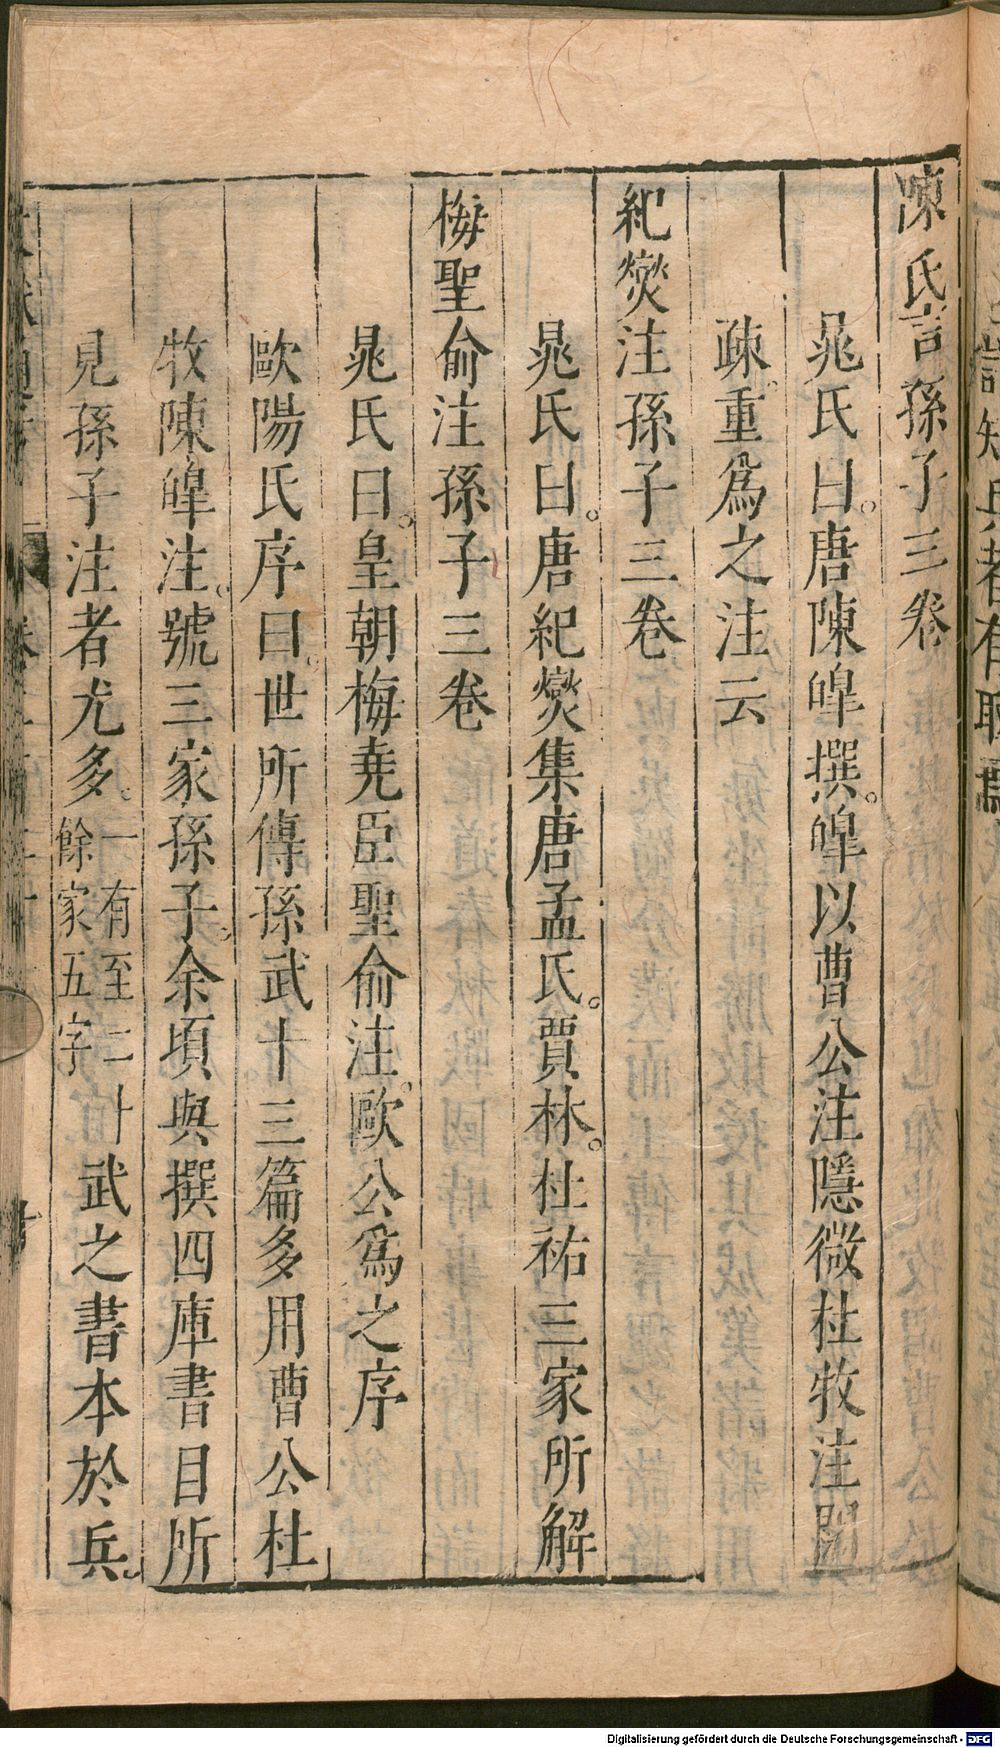 陳氏言孫子三卷
晁氏曰唐陳皥撰皥以曹公注隱微杜牧注闊
疎重爲之注云
紀燮注孫子三卷
晁氏曰唐紀燮集唐孟氏賈林杜祐三家所解
梅聖俞注孫子三卷
晁氏曰皇朝梅堯臣聖俞注歐公爲之序
歐陽氏序曰世所傳孫武十三篇多用曹公杜
牧陳皥注號三家孫子余頃與撰四庫書目所
見孫子注者尤多一有至二十餘家五字武之書本於兵
Digitalisierung gefördert durch die Deutsche Forschungsgemeinschaft - DFG